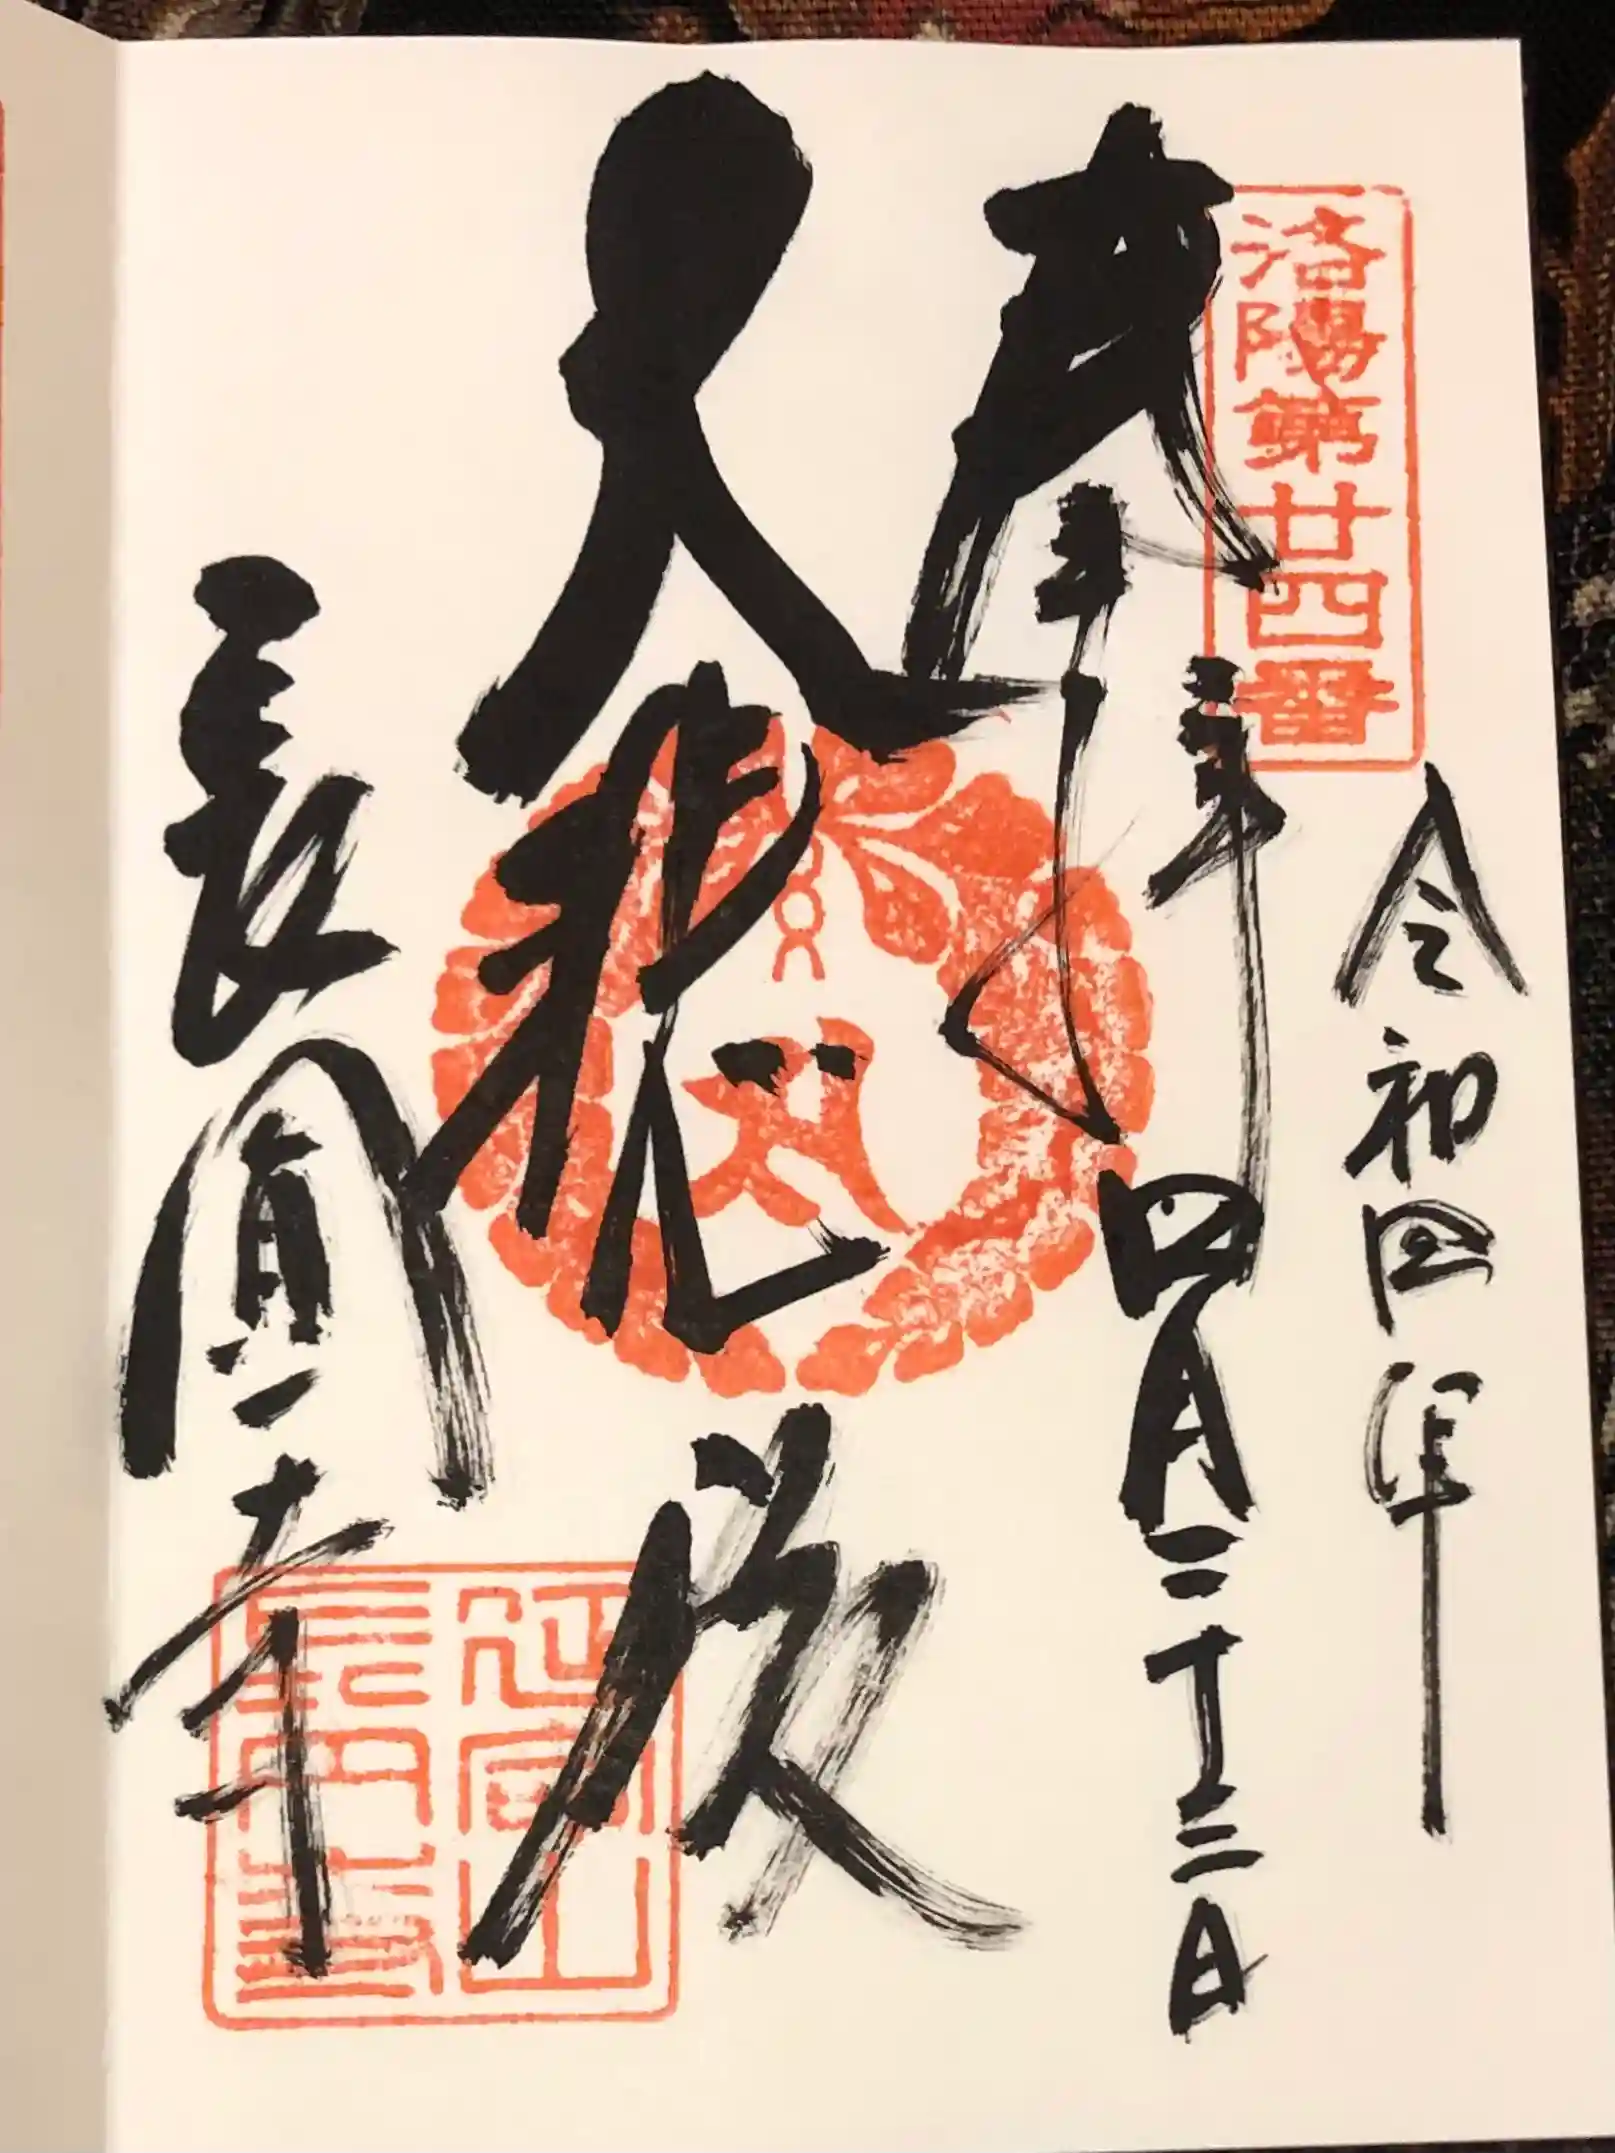 洛陽第廿四番
奉拝
令和四年
四月二十三日
大悲殿
長圓寺